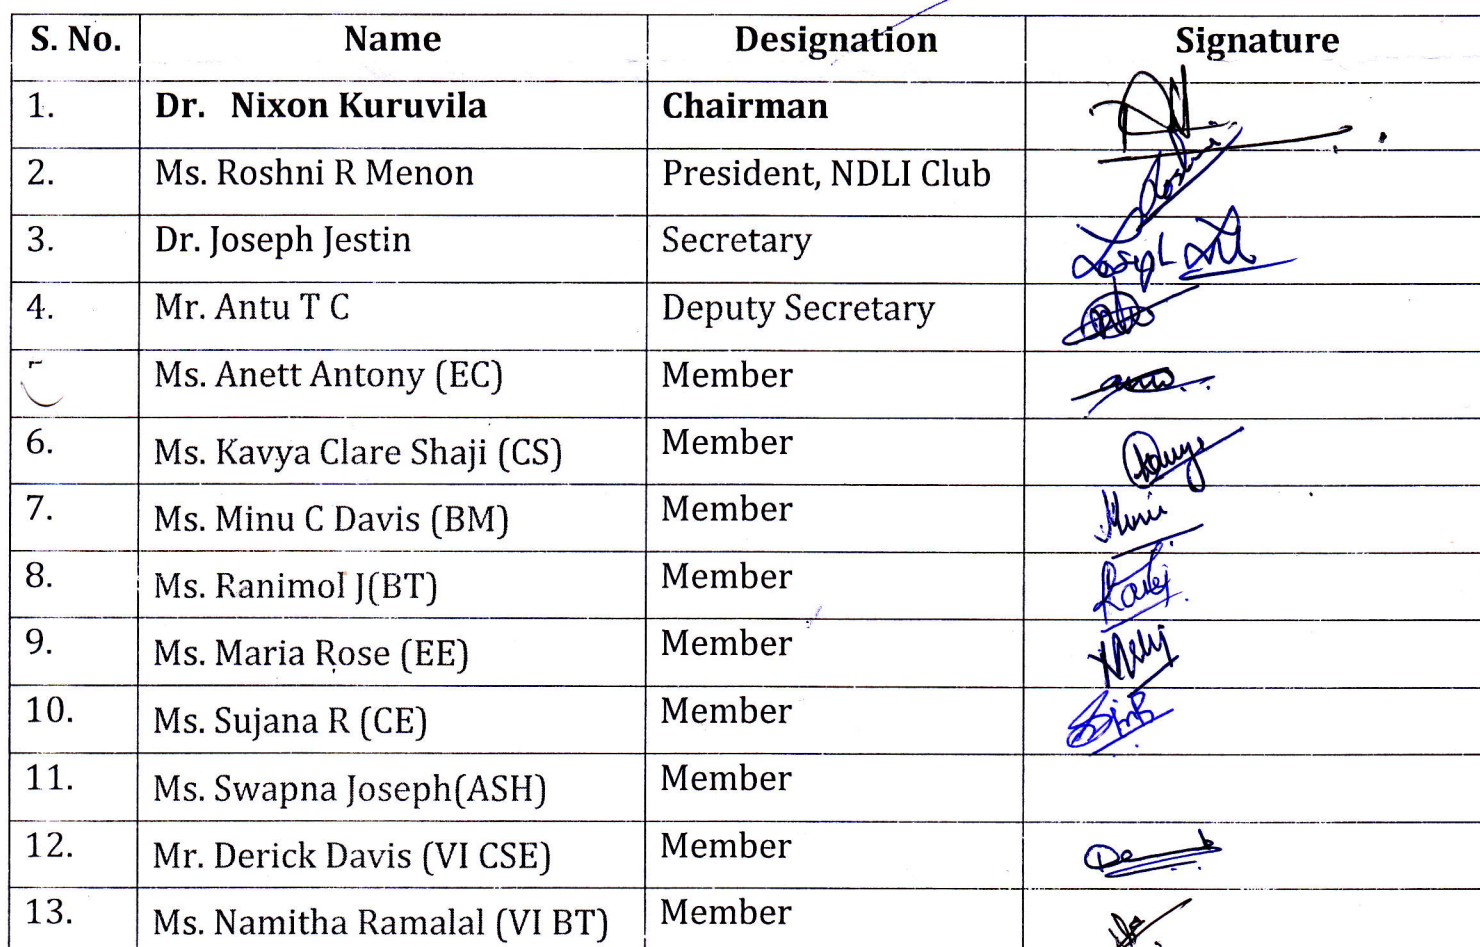 S. No. Name Designation Signature
1. Dr. Nixon Kuruvila Chairman
2. Ms. Roshni R Menon President, NDLI Club
3. Dr. Joseph Jestin Secretary
4. Mr. Antu T C Deputy Secretary
Ms. Anett Antony (EC) Member
6. Ms. Kavya Clare Shaji (CS) Member
7. Ms. Minu C Davis (BM) Member Minu
8. Ms. Ranimol J(BT) Member
9. Ms. Maria Rose (EE) Member
10. Ms. Sujana R (CE) Member
11. Ms. Swapna Joseph(ASH) Member
12. Mr. Derick Davis (VI CSE) Member
13. Ms. Namitha Ramalal (VI BT) Member